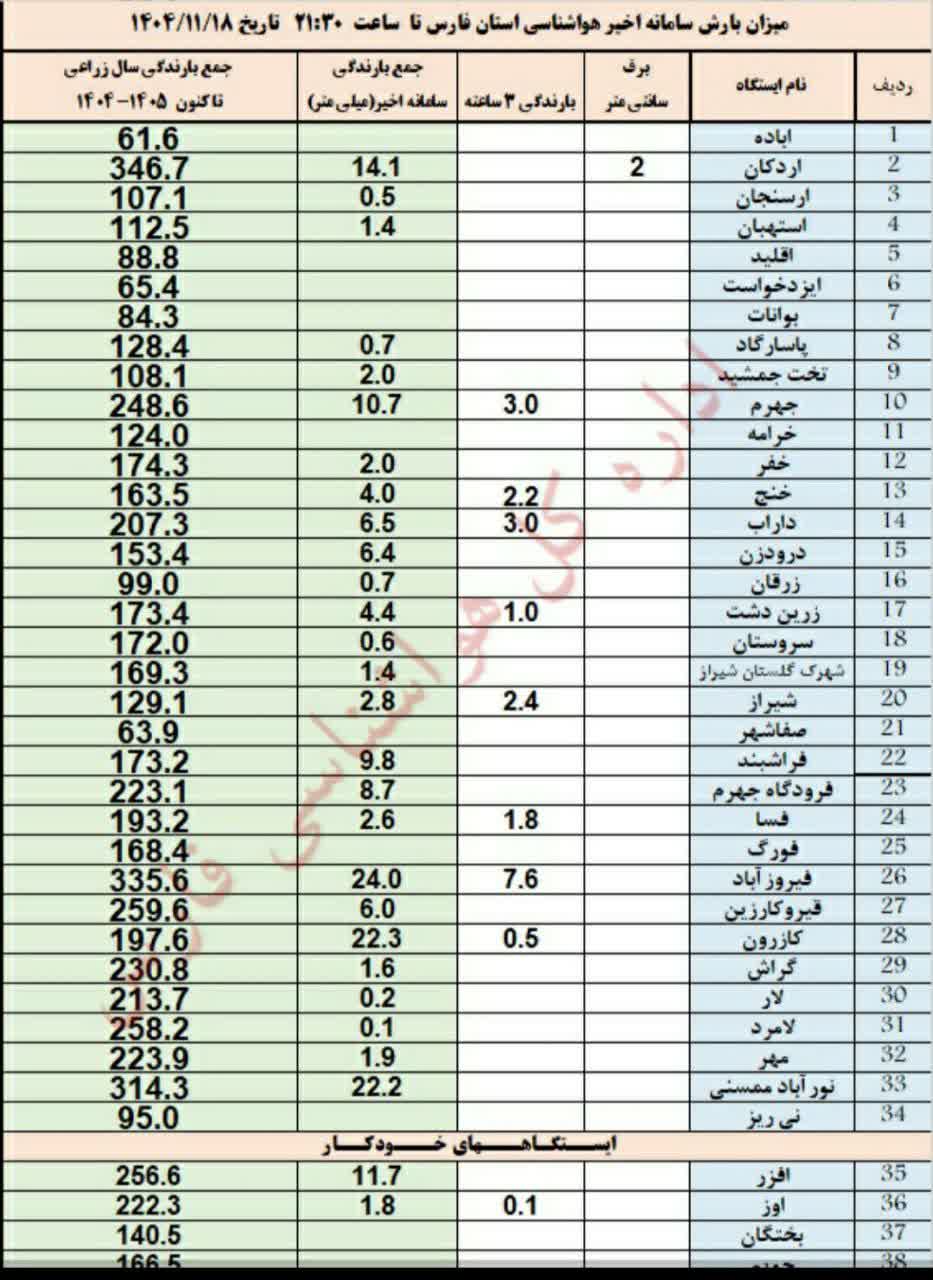 میزان بارش سامانه اخیر هواشناسی استان فارس تا ساعت ۲۱:۳۰ تاریخ ۱۴۰۴/۱۱/۱۸
ردیف نام ایستگاه برف سانتی متر بارندگی ۳ ساعته جمع بارندگی سامانه اخیر(میلی متر) جمع بارندگی سال زراعی ۱۴۰۴-۱۴۰۵ تاکنون
1 اباده 61.6
2 اردکان 2 14.1 346.7
3 ارسنجان 0.5 107.1
4 استهبان 1.4 112.5
5 اقلید 88.8
6 ایزدخواست 65.4
7 بوانات 84.3
8 پاسارگاد 0.7 128.4
9 تخت جمشید 2.0 108.1
10 جهرم 3.0 10.7 248.6
11 خرامه 124.0
12 خفر 2.0 174.3
13 خنج 2.2 4.0 163.5
14 داراب 3.0 6.5 207.3
15 درودزن 6.4 153.4
16 زرقان 0.7 99.0
17 زرین دشت 1.0 4.4 173.4
18 سروستان 0.6 172.0
19 شهرک گلستان شیراز 1.4 169.3
20 شیراز 2.4 2.8 129.1
21 صفاشهر 63.9
22 فراشبند 9.8 173.2
23 فرودگاه جهرم 8.7 223.1
24 فسا 1.8 2.6 193.2
25 فورگ 168.4
26 فیروزآباد 7.6 24.0 335.6
27 قیروکارزین 6.0 259.6
28 کازرون 0.5 22.3 197.6
29 گراش 1.6 230.8
30 لار 0.2 213.7
31 لامرد 0.1 258.2
32 مهر 1.9 223.9
33 نورآباد ممسنی 22.2 314.3
34 نی ریز 95.0
ایستگاههای خودکار
35 افزر 11.7 256.6
36 اوز 0.1 1.8 222.3
37 بختگان 140.5
38 166.5
اداره کل هواشناسی فارس